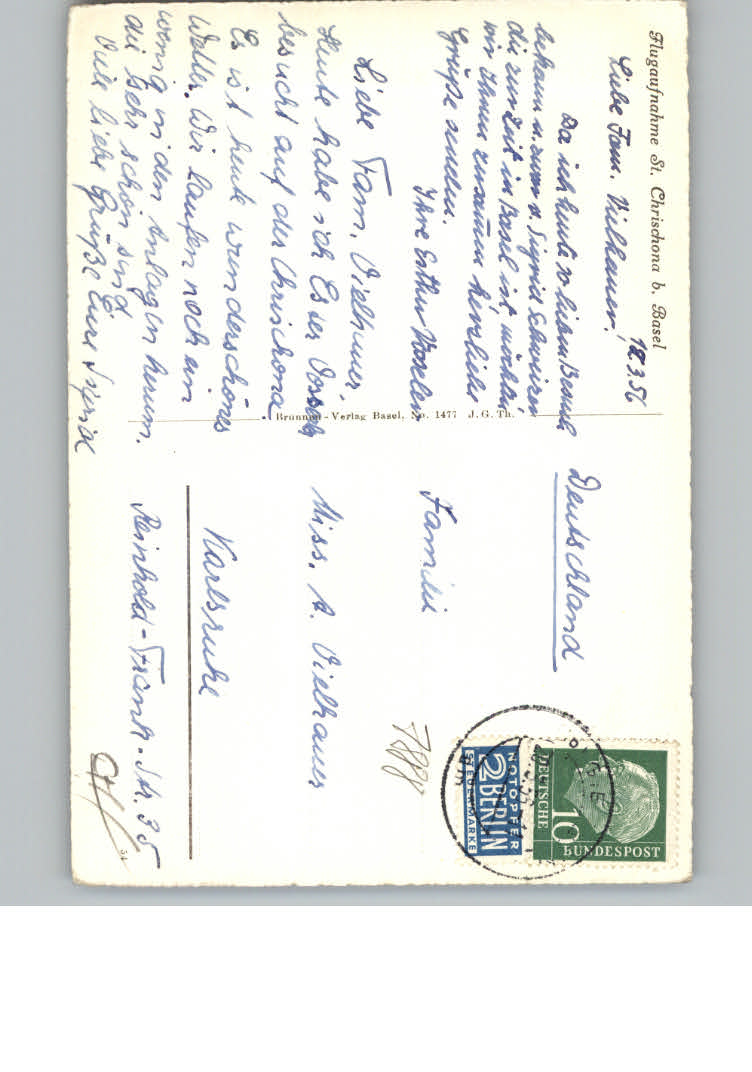 Flugaufnahme St. Chrischona b. Basel
18.3.56
Liebe Fam. Vielhauer,
Da ich heute so lieben Besuch
bekam u. zwar v. Sigrid
die zur Zeit in Basel ist möchten
wir Ihnen zusammen herzliche
Grüße senden.
Ihre Esther
Liebe Fam. Vielhauer,
Heute habe ich Esther
besucht auf der Chrischona.
Es ist heute wunderschönes
Wetter. Wir laufen noch ein
wenig in den Anlagen herum.
die sehr schön sind
Viele liebe Grüße Eure Sigrid
Brunnen-Verlag Basel, No. 1477 J. G. Th.
Deutschland
Familie
Miss. A. Vielhauer
Karlsruhe
Reinhold-Frank-Str. 35
NOTOPFER
2 BERLIN
STEUERMARKE
DEUTSCHE
10
BUNDESPOST
54